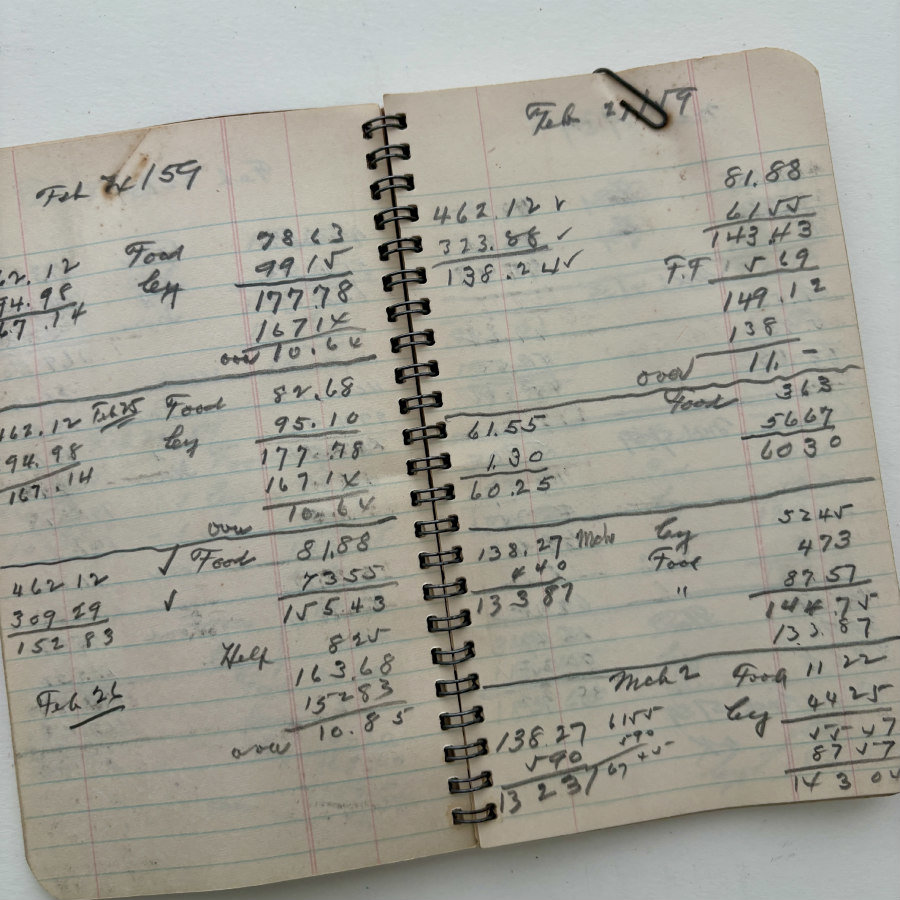 Feb 24/59
62.12 Food 78 63
94.98 Cig 99 15
67.14 177 78
167 14
over 10.64
462.12 Feb 25 Food 82.68
94.98 Cig 95.10
167.14 177.78
167.14
over 10.64
462 12 √ Food 81.88
309 29 √ 73 55
152 83 155.43
Help 8 25
163.68
Feb 26 152 83
over 10.85
Feb /59
81.88
462.12 √ 61 55
323.88 √ 143.43
138.24 √ F.F 5 69
149.12
138
over 11. –
61.55 Food 3 63
1.30 56 67
60.25 60 30
138.27 Mch Cig 52 45
4 40 Food 4 73
133 87 " 87 57
144.75
133.87
Mch 2 Food 11 22
138.27 61 55 Cig 44 25
5 90 5 90 55 47
132 37 87 57
143 04